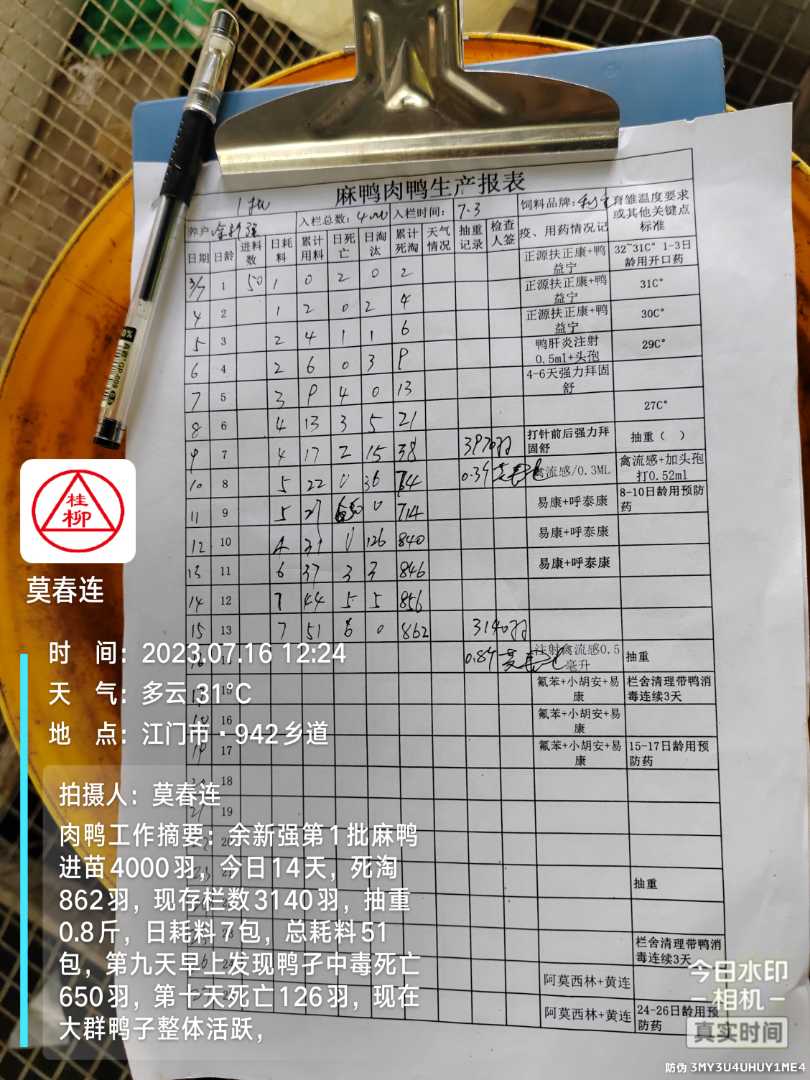 1批
麻鸭肉鸭生产报表
养户 余新强 入栏总数: 4000 入栏时间: 7.3 饲料品牌:
育雏温度要求或其他关键点标准
日期 日龄 进料数 日耗料 累计用料 日死亡 日淘汰 累计死淘 天气情况 抽重记录 检查人签 疫、用药情况记
3/7 1 50 1 0 2 0 2 正源扶正康+鸭益宁 32~31C° 1-3日龄用开口药
4 2 1 2 0 2 4 正源扶正康+鸭益宁 31C°
5 3 2 4 1 1 6 正源扶正康+鸭益宁 30C°
6 4 2 6 0 3 9 鸭肝炎注射0.5ml+头孢 29C°
7 5 3 9 4 0 13 4-6天强力拜固舒
8 6 4 13 3 5 21 27C°
9 7 4 17 2 15 38 3970羽 打针前后强力拜固舒 抽重（ ）
10 8 5 22 0 36 0.39 禽流感/0.3ML 禽流感+加头孢打0.52ml
11 9 5 27 650 0 714 易康+呼泰康 8-10日龄用预防药
12 10 4 31 0 126 840 易康+呼泰康
13 11 6 37 3 3 846 易康+呼泰康
14 12 7 44 5 5 856
15 13 7 51 6 0 862 3140羽
16 0.84 注射禽流感0.5毫升 抽重
氟苯+小胡安+易康 栏舍清理带鸭消毒连续3天
16 氟苯+小胡安+易康
19 17 氟苯+小胡安+易康 15-17日龄用预防药
18
21 19
抽重
栏舍清理带鸭消毒连续3天
阿莫西林+黄连
阿莫西林+黄连 24-26日龄用预防药
桂柳
莫春连
时 间: 2023.07.16 12:24
天 气: 多云 31°C
地 点: 江门市·942乡道
拍摄人: 莫春连
肉鸭工作摘要: 余新强第1批麻鸭
进苗4000羽，今日14天，死淘
862羽，现存栏数3140羽，抽重
0.8斤，日耗料7包，总耗料51
包，第九天早上发现鸭孑中毒死亡
650羽，第十天死亡126羽，现在
大群鸭子整体活跃，
今日水印
相机
真实时间
防伪 3MY3U4UHUY1ME4